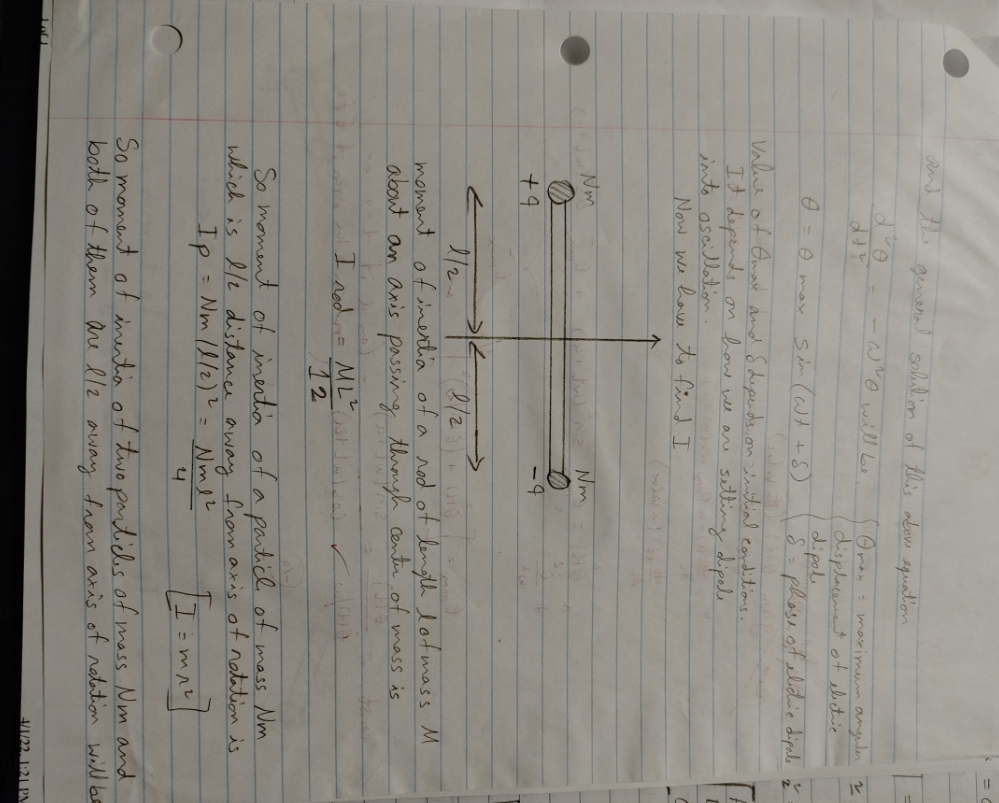 and the general solution of this above equation
d²θ/dt² = - ω²θ will be,
θ = θ max sin (ωt + δ)
{ θmax = maximum angular
displacement of electric
dipole
{ δ = phase of electric dipole
Value of θmax and δ depends on initial conditions.
It depends on how we are setting dipole
into oscillation.
Now we have to find I
Nm Nm
+q -q
l/2 l/2
moment of inertia of a rod of length l of mass M
about an axis passing through center of mass is
I rod = ML²/12
So moment of inertia of a particle of mass Nm
which is l/2 distance away from axis of rotation is
Ip = Nm (l/2)² = Nml²/4 [I = mr²]
So moment of inertia of two particles of mass Nm and
both of them are l/2 away from axis of rotation will be
4/1/22, 1:21 PM